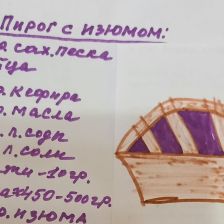 Пирог с изюмом:
сах.песка
р. Кефира
р. масла
. л. соды
. л. соли
жи - 10 гр.
450-500 гр.
изюма